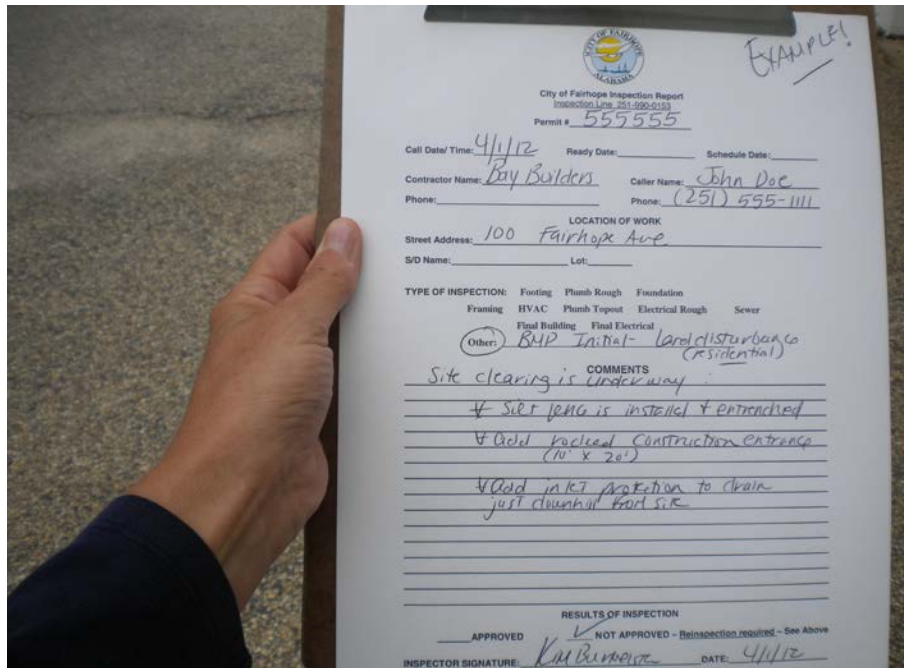 EXAMPLE!
CITY OF FAIRHOPE
ALABAMA
City of Fairhope Inspection Report
Inspection Line 251-990-0153
Permit # 555555
Call Date/ Time: 4/1/12 Ready Date: Schedule Date:
Contractor Name: Bay Builders Caller Name: John Doe
Phone: Phone: (251) 555-1111
LOCATION OF WORK
Street Address: 100 Fairhope Ave
S/D Name: Lot:
TYPE OF INSPECTION: Footing Plumb Rough Foundation
Framing HVAC Plumb Topout Electrical Rough Sewer
Final Building Final Electrical
Other: BMP Initial- Land disturbance
(residential)
COMMENTS
Site clearing is underway :
Silt fence is installed + entrenched
add rocked construction entrance
(10' x 20')
add inlet protection to drain
just downhill from site
RESULTS OF INSPECTION
APPROVED NOT APPROVED – Reinspection required – See Above
INSPECTOR SIGNATURE: Kim DATE: 4/1/12